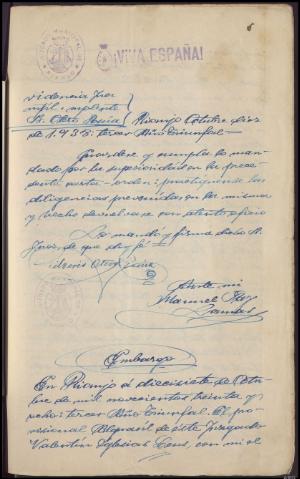 6
¡VIVA ESPAÑA!
Providencia Juez
mpl. suplente
Sr. Otero
Rianjo Octubre diez
de 1.938: tercer Año Triunfal=
Guárdese y cumpla lo man-
dado por la superioridad en la prece-
dente carta-orden; practíquense las
diligencias prevenidas en la misma
y hecho devuélvase con atento oficio
Lo mandó y firma dicho Sr.
Juez, de que doy fé=
Otero
Ante mi
Manuel
Embargo
En Rianjo a diecisiete de Octu-
bre de mil novecientos treinta y
ocho: tercer Año Triunfal= El pro-
fesional Alguacil de este Juzgado
Valentín Iglesias con mi el